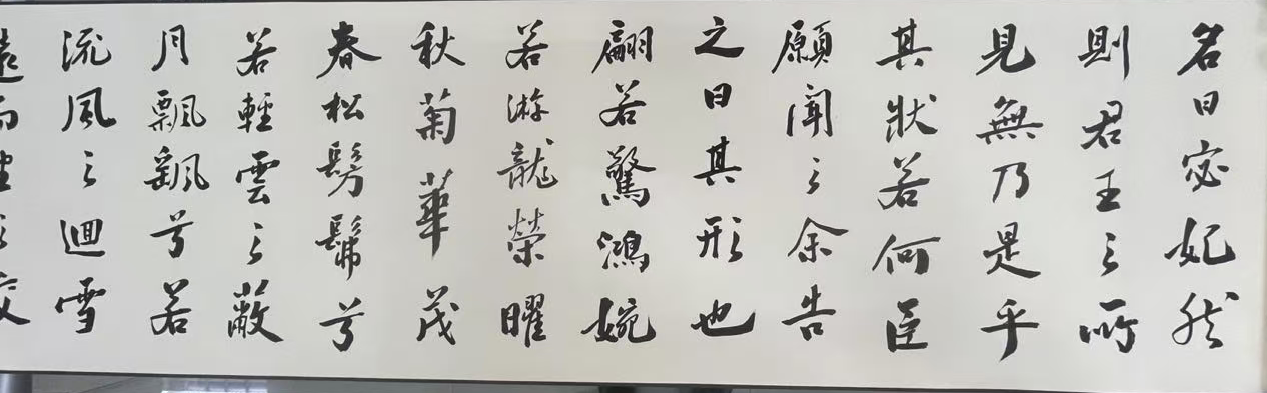 名曰宓妃然
則君王之所
見無乃是乎
其狀若何臣
願聞之余告
之曰其形也
翩若驚鴻婉
若游龍榮曜
秋菊華茂
春松髣髴兮
若輕雲之蔽
月飄飖兮若
流風之迴雪